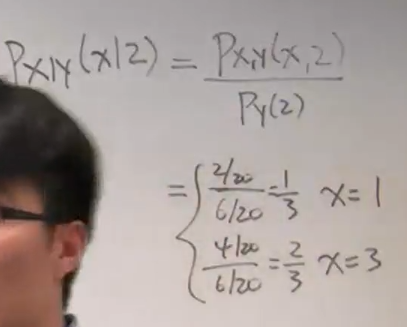 PX|Y(x|2) = PX,Y(x,2)/PY(2)
= { 2/20 / 6/20 = 1/3 x=1
4/20 / 6/20 = 2/3 x=3